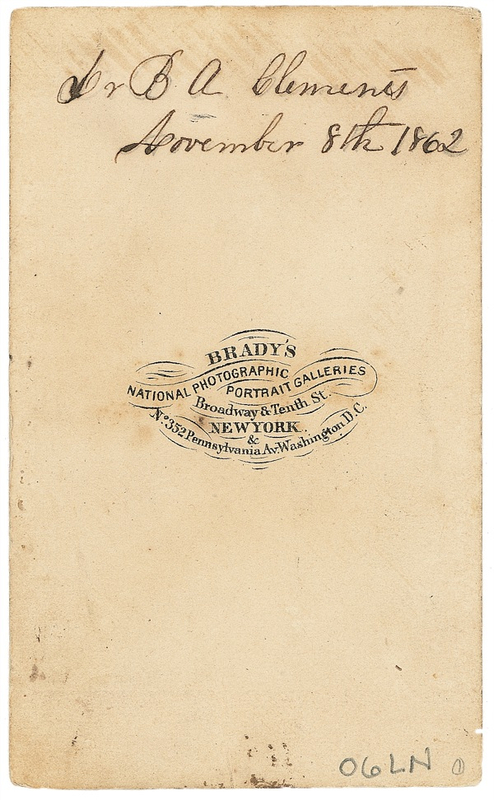 Dr B A Clements
November 8th 1862
BRADY'S
NATIONAL PHOTOGRAPHIC
PORTRAIT GALLERIES
Broadway & Tenth St.
NEW YORK
&
No 352 Pennsylvania Av. Washington D.C.
06LN